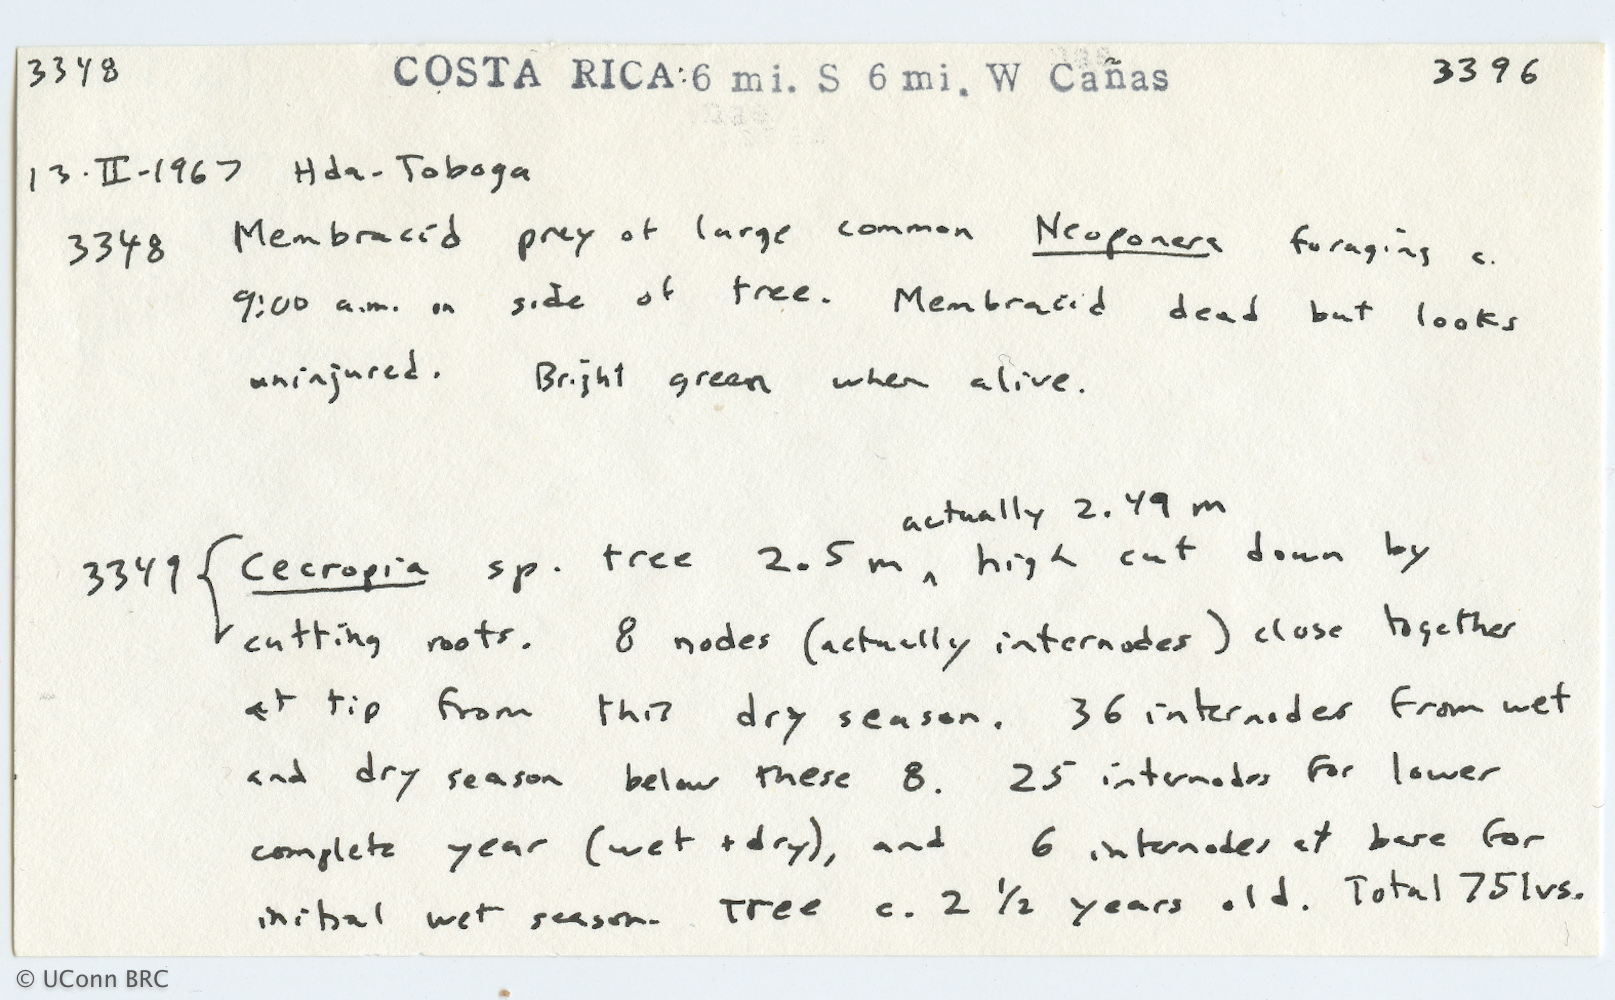 3348 COSTA RICA: 6 mi. S 6 mi. W Cañas 3396
13-II-1967 Hda-Taboga
3348 Membracid prey of large common Neoponera foraging c.
9:00 a.m. on side of tree. Membracid dead but looks
uninjured. Bright green when alive.
actually 2.49 m
3349 { Cecropia sp. tree 2.5 m ^ high cut down by
cutting roots. 8 nodes (actually internodes) close together
at tip from this dry season. 36 internodes from wet
and dry season below these 8. 25 internodes for lower
complete year (wet + dry), and 6 internodes at base for
initial wet season. Tree c. 2 1/2 years old. Total 75 lvs.
© UConn BRC